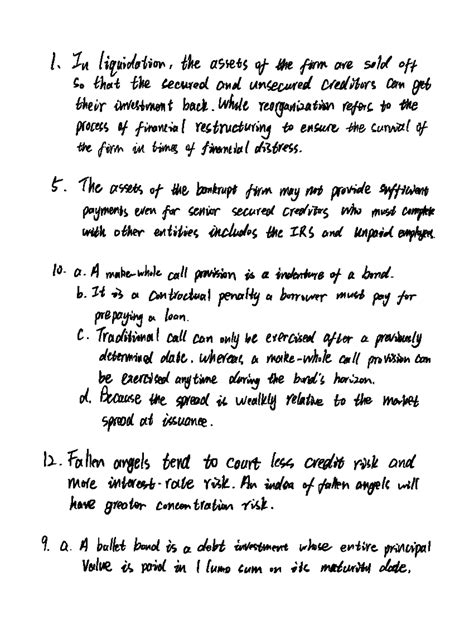 1. In liquidation, the assets of the firm are sold off
so that the secured and unsecured creditors can get
their investment back. While reorganization refers to the
process of financial restructuring to ensure the survival of
the firm in times of financial distress.
5. The assets of the bankrupt firm may not provide sufficient
payments even for senior secured creditors who must compete
with other entities includes the IRS and unpaid employees.
10. a. A make-whole call provision is a indenture of a bond.
b. It is a contractual penalty a borrower must pay for
prepaying a loan.
c. Traditional call can only be exercised after a previously
determined date. Whereas, a make-whole call provision can
be exercised anytime during the bond's horizon.
d. Because the spread is wealkly relative to the market
spread at issuance.
12. Fallen angels tend to court less credit risk and
more interest-rate risk. An index of fallen angels will
have greater concentration risk.
9. a. A bullet bond is a debt investment whose entire principal
value is paid in 1 lump sum on its maturity date.